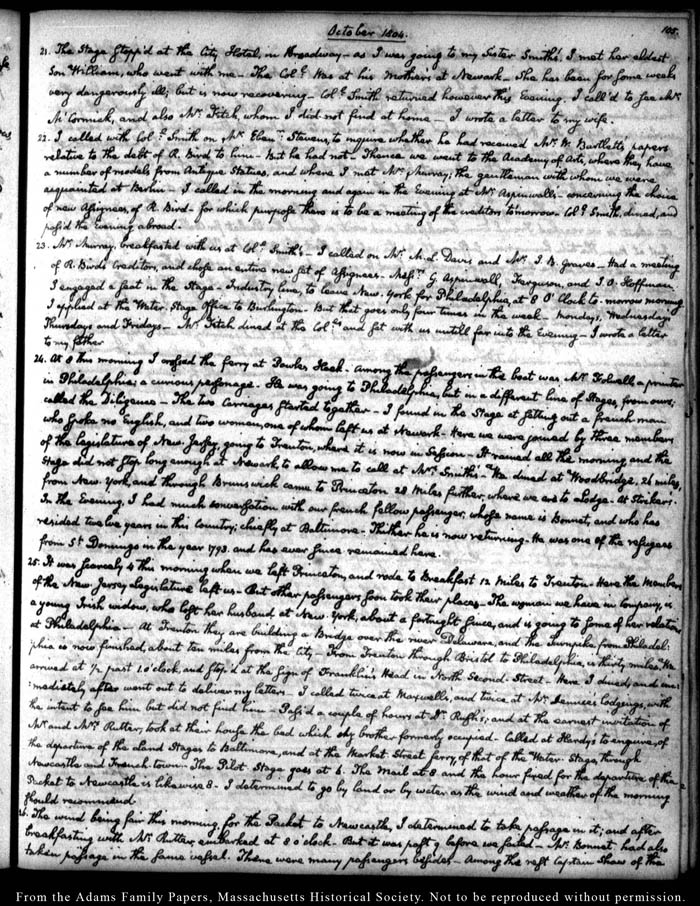 October 1804.
105.
21. The Stage stopp'd at the City Hotel in Broadway — as I was going to my Sister Smith's I met her eldest
Son William, who went with me — The Col.º was at his Mothers at Newark — She has been for some weeks
very dangerously ill; but is now recovering — Col.º Smith returned however this Evening, I call'd to see Mr.
McCormick, and also Mr. Fitch, whom I did not find at home — I wrote a letter to my wife.
22. I called with Col.º Smith on Mr. Eben.r Stevens, to inquire whether he had received Mr. W. Bartlett's papers
relative to the debt of R. Bird to him — But he had not — Thence we went to the Academy of Arts, where they have
a number of models from Antique Statues, and where I met Mr. Murray; the gentleman with whom we were
acquainted at Berlin — I called in the morning and again in the Evening at Mr. Aspinwall's — concerning the choice
of new Assignees of R. Bird — for which purpose there is to be a meeting of the creditors tomorrow. Col.º Smith, dined, and
pass'd the Evening abroad.
23. Mr. Murray, breakfasted with us at Col.º Smith's — I called on Mr. M. L. Davis and Mr. J. B. Graves — Had a meeting
of R. Bird's Creditors, and chose an entire new set of Assignees — Mess.rs G. Aspinwall, Ferguson, and J. O. Hoffman,
I engaged a seat in the Stage — Industry line, to leave New-York for Philadelphia, at 8 O'Clock to-morrow morning
I applied at the Water-Stage Office to Burlington — But that goes only four times in the week — Mondays, Wednesdays
Thursdays and Fridays — Mr. Fitch dined at the Col.ºs and sat with us untill far into the Evening — I wrote a letter
to my father
24. At 8 this morning I crossed the ferry at Powles Hook — Among the passengers in the boat was Mr. Folwell a printer
in Philadelphia; a curious personage — He was going to Philadelphia, but in a different line of Stages, from ours;
called the Diligence — The two Carriages started together — I found in the Stage at setting out a french man
who spoke no English, and two women, one of whom left us at Newark — Here we were joined by three members
of the legislature of New-Jersey, going to Trenton, where it is now in Session — It rained all the morning, and the
Stage did not stop long enough at Newark, to allow me to call at Mrs. Smith's — We dined at Woodbridge, 26 miles,
from New-York, and through Brunswick came to Princeton 28 Miles further, where we are to Lodge — At Stricker's
In the Evening, I had much conversation with our french fellow passenger, whose name is Bonnet, and who has
resided twelve years in this Country; chiefly at Baltimore — Thither he is now returning — He was one of the refugees
from St. Domingo in the year 1793. and has ever since remained here.
25. It was scarcely 4 this morning when we left Princeton, and rode to Breakfast 12 Miles to Trenton — Here the Members
of the New-Jersey legislature left us — But other passengers soon took their places — The woman we have in company, is
a young Irish widow, who left her husband at New-York, about a fortnight since, and is going to some of her relations
at Philadelphia — At Trenton they are building a Bridge over the river Delaware, and the Turnpike from Philadel-
phia is now finished, about ten miles from the City — From Trenton through Bristol to Philadelphia, is thirty miles — We
arrived at ½ past 1 o'clock, and stop'd at the Sign of Franklin's Head in North Second Street — Here I dined, and im-
mediately after went out to deliver my letters — I called twice at Maxwell's, and twice at Mr. Dennie's lodgings, with
the intent to see him but did not find him — Pass'd a couple of hours at Dr. Rush's; and at the earnest invitation of
Mr. and Mrs. Rutter, took at their house the bed which my brother formerly occupied — Called at Hardy's to enquire, of
the departure of the Land Stages to Baltimore, and at the Market Street ferry, of that of the Water-Stage, through
Newcastle and French-town — The Pilot Stage goes at 6. The Mail at 8 and the hour fixed for the departure of the
Packet to Newcastle is likewise 8 — I determined to go by land or by water as the wind and weather of the morning
should recommend.
26. The wind being fair this morning, for the Packet to Newcastle, I determined to take passage in it; and after
breakfasting with Mr. Rutter, embarked at 8 o'clock — But it was past 9 before we sailed — Mr. Bonnet had also
taken passage in the same vessel. There were many passengers besides — Among the rest Captain Shaw of the
From the Adams Family Papers, Massachusetts Historical Society. Not to be reproduced without permission.